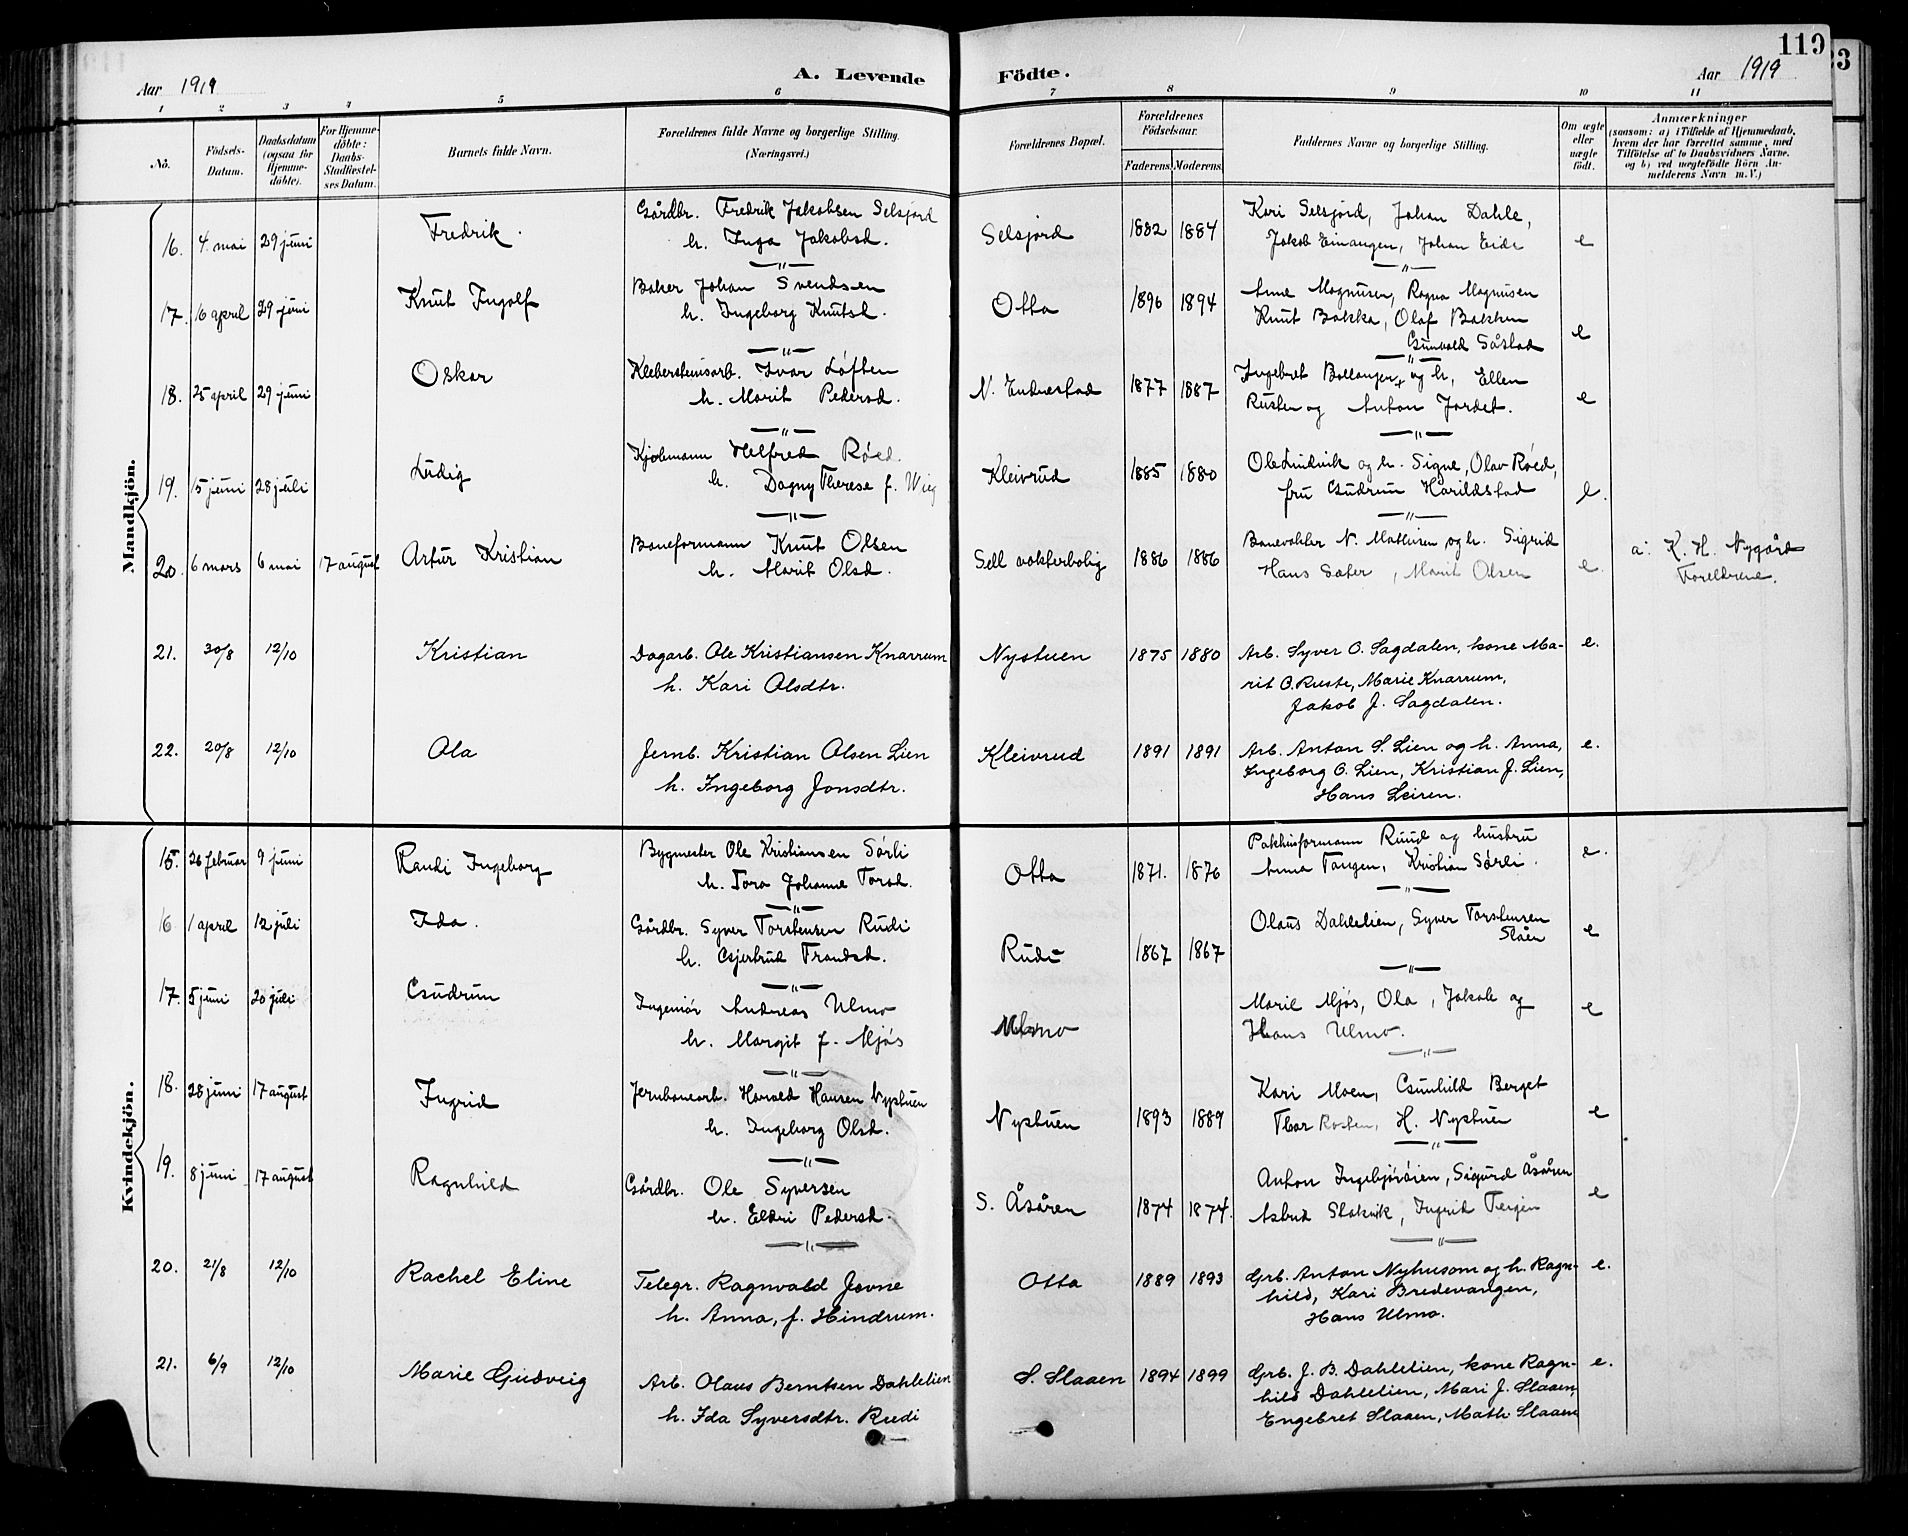 119
23
Aar 1919
A. Levende
Födte.
Aar 1919
1 2 3 4 5 6 7 8 9 10 11
No.
Födsels-
Datum.
Daabsdatum
(ogsaa for
Hjemme-
döbte).
For Hjemme-
döbte:
Daabs-
Stadfæstel-
ses Datum.
Barnets fulde Navn.
Forældrenes fulde Navne og borgerlige Stilling.
(Næringsvei.)
Forældrenes Bopæl.
Forældrenes
Födselsaar.
Faderens. Moderens.
Faddernes Navne og borgerlige Stilling.
Om ægte
eller
uægte
födt.
Anmærkninger
(saasom: a) i Tilfælde af Hjemmedaab,
hvem der har forrettet samme, med
Tilföielse af to Daabsvidners Navne.
og b) ved uægtefödte Börn An-
melderens Navn m. V.)
Mandkjön.
16. 4 mai 29 juni Fredrik. Gårdbr. Fredrik Jakobsen Selsjord
h. Inga Jakobsd. Selsjord 1882 1884 Kari Selsjord, Johan Dahle,
Jakob Einangen, Johan Eide e
17. 16 april 29 juni Knut Ingolf Baker Johan Svendsen
h. Ingeborg Knutsd. Otta 1896 1894 Anne Magnusen, Ragna Magnusen
Knut Bakka, Olaf Bakken
Gunvald Såstad e
18. 25 april 29 juni Oskar Klebersteinsarb. Ivar Løften
h. Marit Pedersd. N. Endrestad 1877 1887 Ingebret Ballangen og h, Ellen
Rusten og Anton Jordet. e
19. 15 juni 28 juli Ludig Kjøbmann Helfred Røed.
h. Dagny Therese f. Wieg Kleivrud 1885 1880 Ole Lindvik og h. Signe, Olav Røed,
fru Gudrun Harildstad e.
20. 6 mars 6 mai 17 august Artur Kristian Baneformann Knut Olsen
h. Marit Olsd. Sell vokterbolig 1886 1886 Banevokter N. Mathisen og h. Sigrid
Hans Sater, Marit Olsen e. a: K. H. Nygård
Foreldrene.
21. 30/8 12/10 Kristian Dagarb. Ole Kristiansen Knarrum
h. Kari Olsdtr. Nystuen 1875 1880 Arb. Syver O. Sagdalen, kone Ma-
rit O. Ruste, Marie Knarrum,
Jakob J. Sagdalen. e.
22. 20/8 12/10 Ola Jernb. Kristian Olsen Lien
h. Ingeborg Jonsdtr. Kleivrud 1891 1891 Arb. Anton S. Lien og h. Anna,
Ingeborg O. Lien, Kristian J. Lien,
Hans Leiren. e.
Kvindekjön.
15. 26 februar 9 juni Randi Ingeborg Bygmester Ole Kristiansen Sørli
h. Tora Johanne Torsd. Otta 1871. 1876 Pakhusformann Ruud og hustru
Anna Tangen, Kristian Sørli. e.
16 1 april 12 juli Ida. Gårdbr. Syver Torstensen Rudi
h. Gjertrud Trondsd. Rudi 1867 1867 Olaus Dahlelien, Syver Torstensen
Slåen e
17. 5 juni 20 juli Gudrun Ingeniør Andreas Ulmo
h. Margit f. Mjøs Ulmo Marie Mjøs, Ola, Jakob og
Hans Ulmo. e
18. 28 juni 17 august Ingrid Jernbanearb. Harald Hansen Nystuen
h. Ingeborg Olsd. Nystuen 1893 1889 Kari Moen, Gunhild Berget
Thor Rosten, H. Nystuen e
19. 8 juni 17 august Ragnhild Gårdbr. Ole Syversen
h. Eldri Pedersd. S. Åsåren 1874 1874. Anton Ingebjørøien, Sigurd Åsåren
Astrid Slotvik, Ingrid e
20. 21/8 12/10 Rachel Eline Telegr. Ragnvald Jevne
h. Anna, f. Hindrum. Otta 1889 1893 Grb. Anton Nyhusom og h. Ragn-
hild, Kari Bredevangen,
Hans Ulmo. e.
21. 6/9 12/10 Marie Gudveig Arb. Olaus Berntsen Dahlelien
h. Ida Syversdtr. Rudi S. Slaaen 1894 1899 Grb. J. B. Dahlelien, kone Ragn-
hild Dahlelien, Mari J. Slaaen,
Engebret Slaaen, Math. Slaaen e.